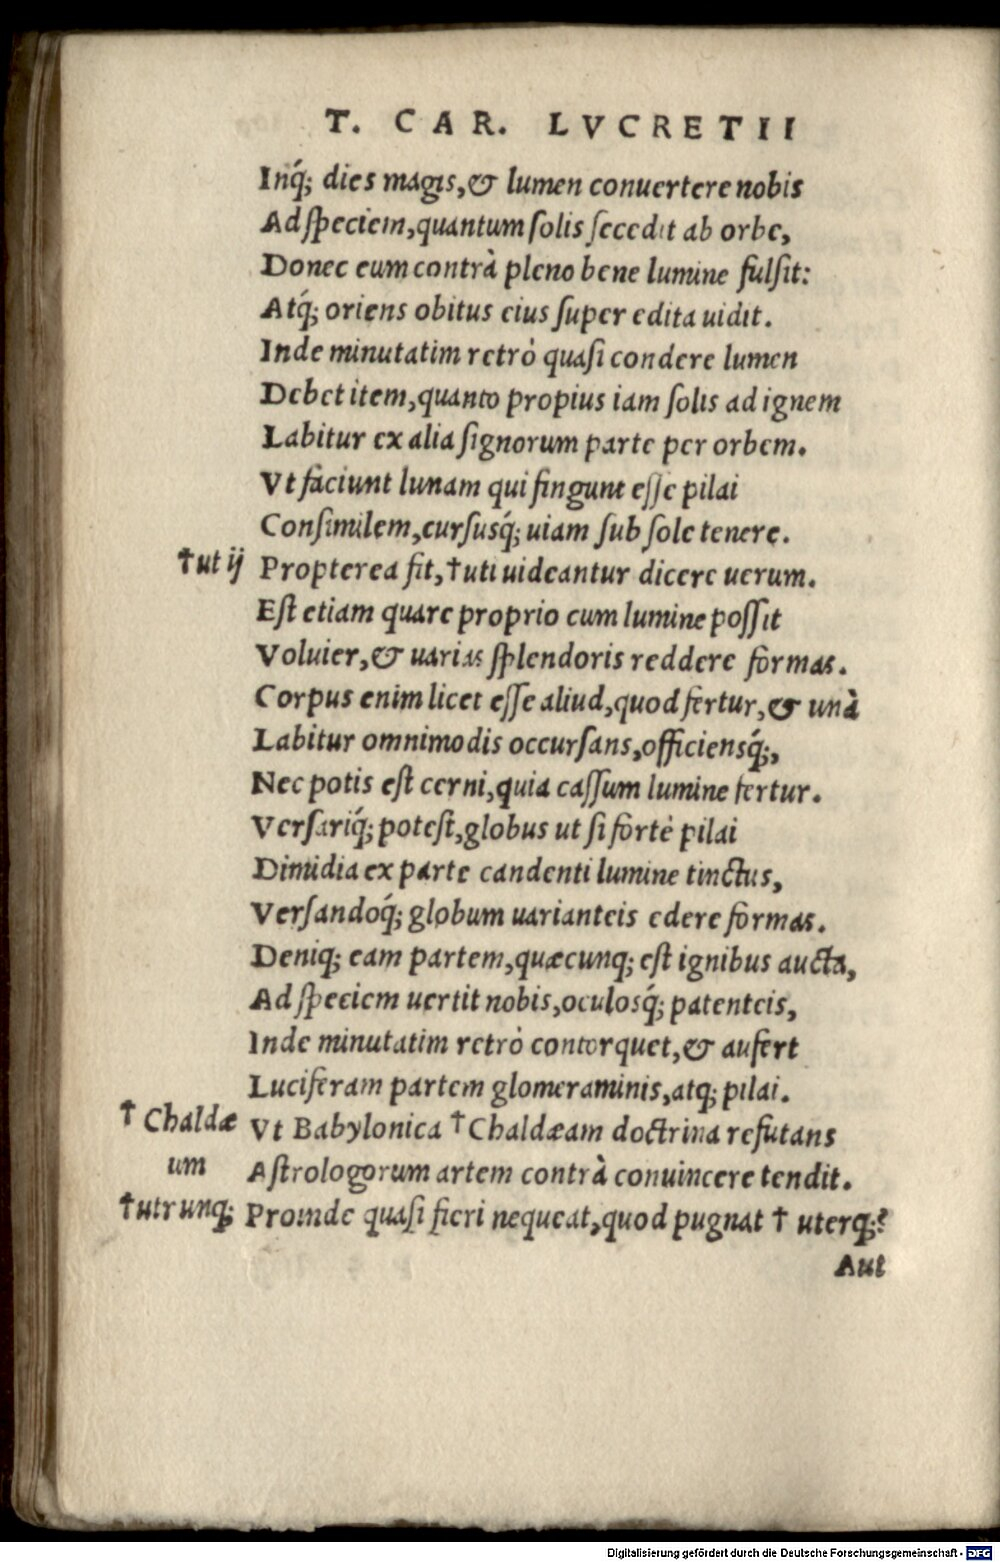 T. CAR. LVCRETII
Inq́; dies magis,& lumen conuertere nobis
Ad ſpeciem,quantum ſolis ſecedit ab orbe,
Donec eum contrà pleno bene lumine fulſit:
Atq́; oriens obitus eius ſuper edita uidit.
Inde minutatim retrò quaſi condere lumen
Debet item,quanto propius iam ſolis ad ignem
Labitur ex alia ſignorum parte per orbem.
Vt faciunt lunam qui fingunt eſſe pilai
Conſimilem,curſusq́; uiam ſub ſole tenere.
†ut ij Propterea fit,†uti uideantur dicere uerum.
Eſt etiam quare proprio cum lumine poſſit
Voluier,& uarias ſplendoris reddere formas.
Corpus enim licet eſſe aliud,quod fertur,& unà
Labitur omnimodis occurſans,officiensq́;,
Nec potis eſt cerni,quia caſſum lumine fertur.
Verſariq́; poteſt,globus ut ſi fortè pilai
Dimidia ex parte candenti lumine tinctus,
Verſandoq́; globum uarianteis edere formas.
Deniq; eam partem,quæcunq; eſt ignibus aucta,
Ad ſpeciem uertit nobis,oculosq́; patenteis,
Inde minutatim retrò contorquet,& aufert
Luciferam partem glomeraminis,atq; pilai.
† Chaldæ Vt Babylonica †Chaldæam doctrina refutans
um Aſtrologorum artem contrà conuincere tendit.
†utrunq; Proinde quaſi fieri nequeat,quod pugnat † uterq;?
Aut
Digitalisierung gefördert durch die Deutsche Forschungsgemeinschaft - DFG